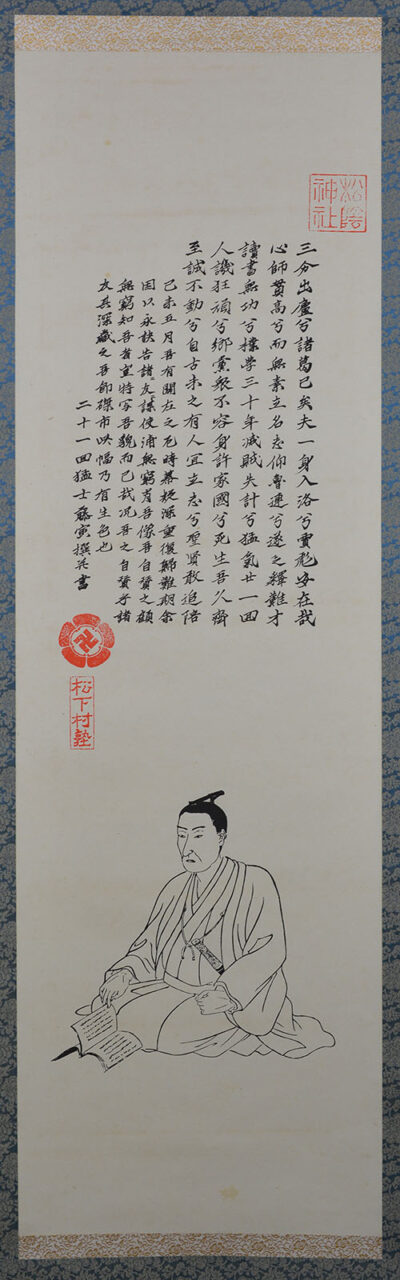 松陰神社
三分出廬兮諸葛已矣夫一身入洛兮賈彪安在哉
心師貫高兮而無素立名志仰魯連兮遂乏釋難才
讀書無功兮樸學三十年滅賊失計兮猛氣廿一回
人譏狂頑兮鄉黨衆不容身許家國兮死生吾久齊
至誠不動兮自古未之有人宜立志兮聖賢敢追陪
己未五月吾有關左之厄時幕疑深重復歸難期余
因以永訣告諸友謀使浦無窮肖吾像吾自贊之顧
無窮知吾者豈特寫吾貌而已哉況吾之自贊乎諸
友其深藏之吾即磔市此幅乃有生色也
二十一回猛士藤寅撰并書
松下村塾